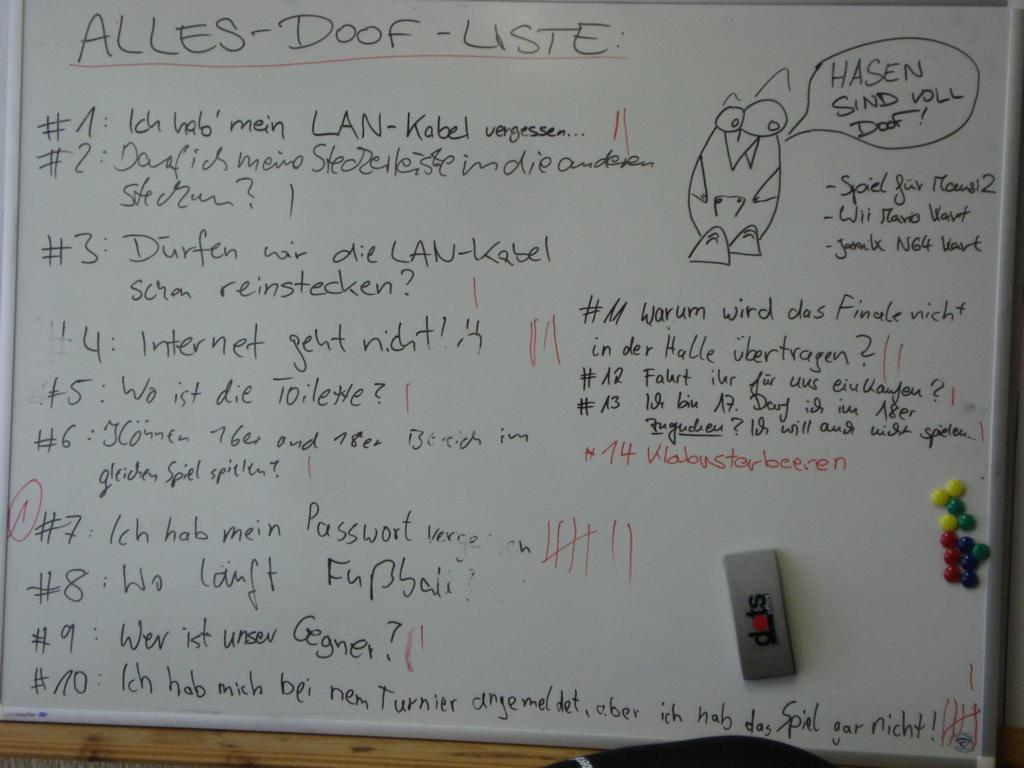 ALLES-DOOF-LISTE:
#1: Ich hab' mein LAN-Kabel vergessen...
#2: Darf ich meine Steckerleiste in die anderen
stecken?
#3: Dürfen wir die LAN-Kabel
schon reinstecken?
#4: Internet geht nicht!
#5: Wo ist die Toilette?
#6: Können 16er und 18er Bereich im
gleichen Spiel spielen?
1
#7: Ich hab mein Passwort vergessen
#8: Wo läuft Fußball?
#9: Wer ist unser Gegner?
#10: Ich hab mich bei nem Turnier angemeldet, aber ich hab das Spiel gar nicht!
HASEN
SIND VOLL
DOOF!
- Spiel für
- Wii Mario Kart
- N64 Kart
#11 Warum wird das Finale nicht
in der Halle übertragen?
#12 Fahrt ihr für uns einkaufen?
#13 Ich bin 17. Darf ich im 18er
zugucken? Ich will auch nicht spielen...
#14 Klabusterbeeren
dots